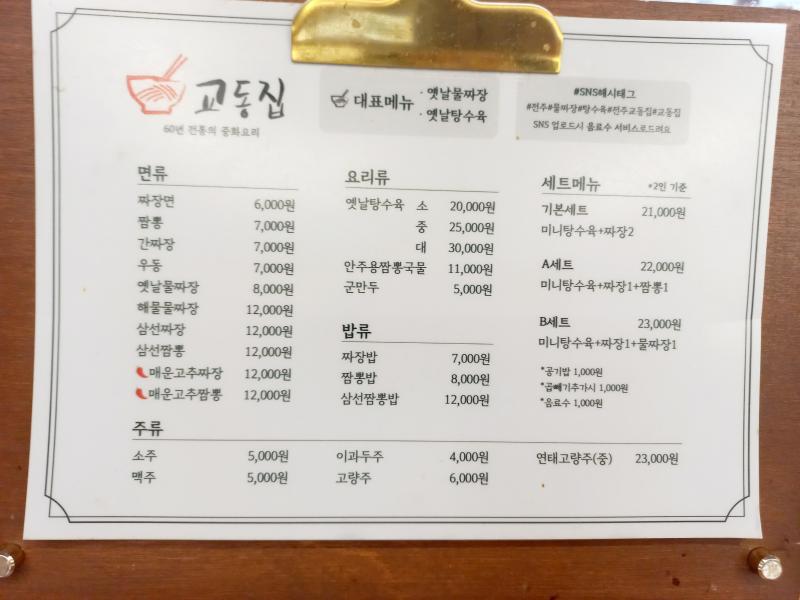 교동집
60년 전통의 중화요리
대표메뉴
· 옛날물짜장
· 옛날탕수육
#SNS해시태그
#전주#물짜장#탕수육#전주교동집#교동집
SNS 업로드시 음료수 서비스로드려요
면류
짜장면 6,000원
짬뽕 7,000원
간짜장 7,000원
우동 7,000원
옛날물짜장 8,000원
해물물짜장 12,000원
삼선짜장 12,000원
삼선짬뽕 12,000원
매운고추짜장 12,000원
매운고추짬뽕 12,000원
요리류
옛날탕수육 소 20,000원
중 25,000원
대 30,000원
안주용짬뽕국물 11,000원
군만두 5,000원
밥류
짜장밥 7,000원
짬뽕밥 8,000원
삼선짬뽕밥 12,000원
세트메뉴 *2인 기준
기본세트 21,000원
미니탕수육+짜장2
A세트 22,000원
미니탕수육+짜장1+짬뽕1
B세트 23,000원
미니탕수육+짜장1+물짜장1
*공기밥 1,000원
*곱빼기추가시 1,000원
*음료수 1,000원
주류
소주 5,000원
맥주 5,000원
이과두주 4,000원
고량주 6,000원
연태고량주(중) 23,000원